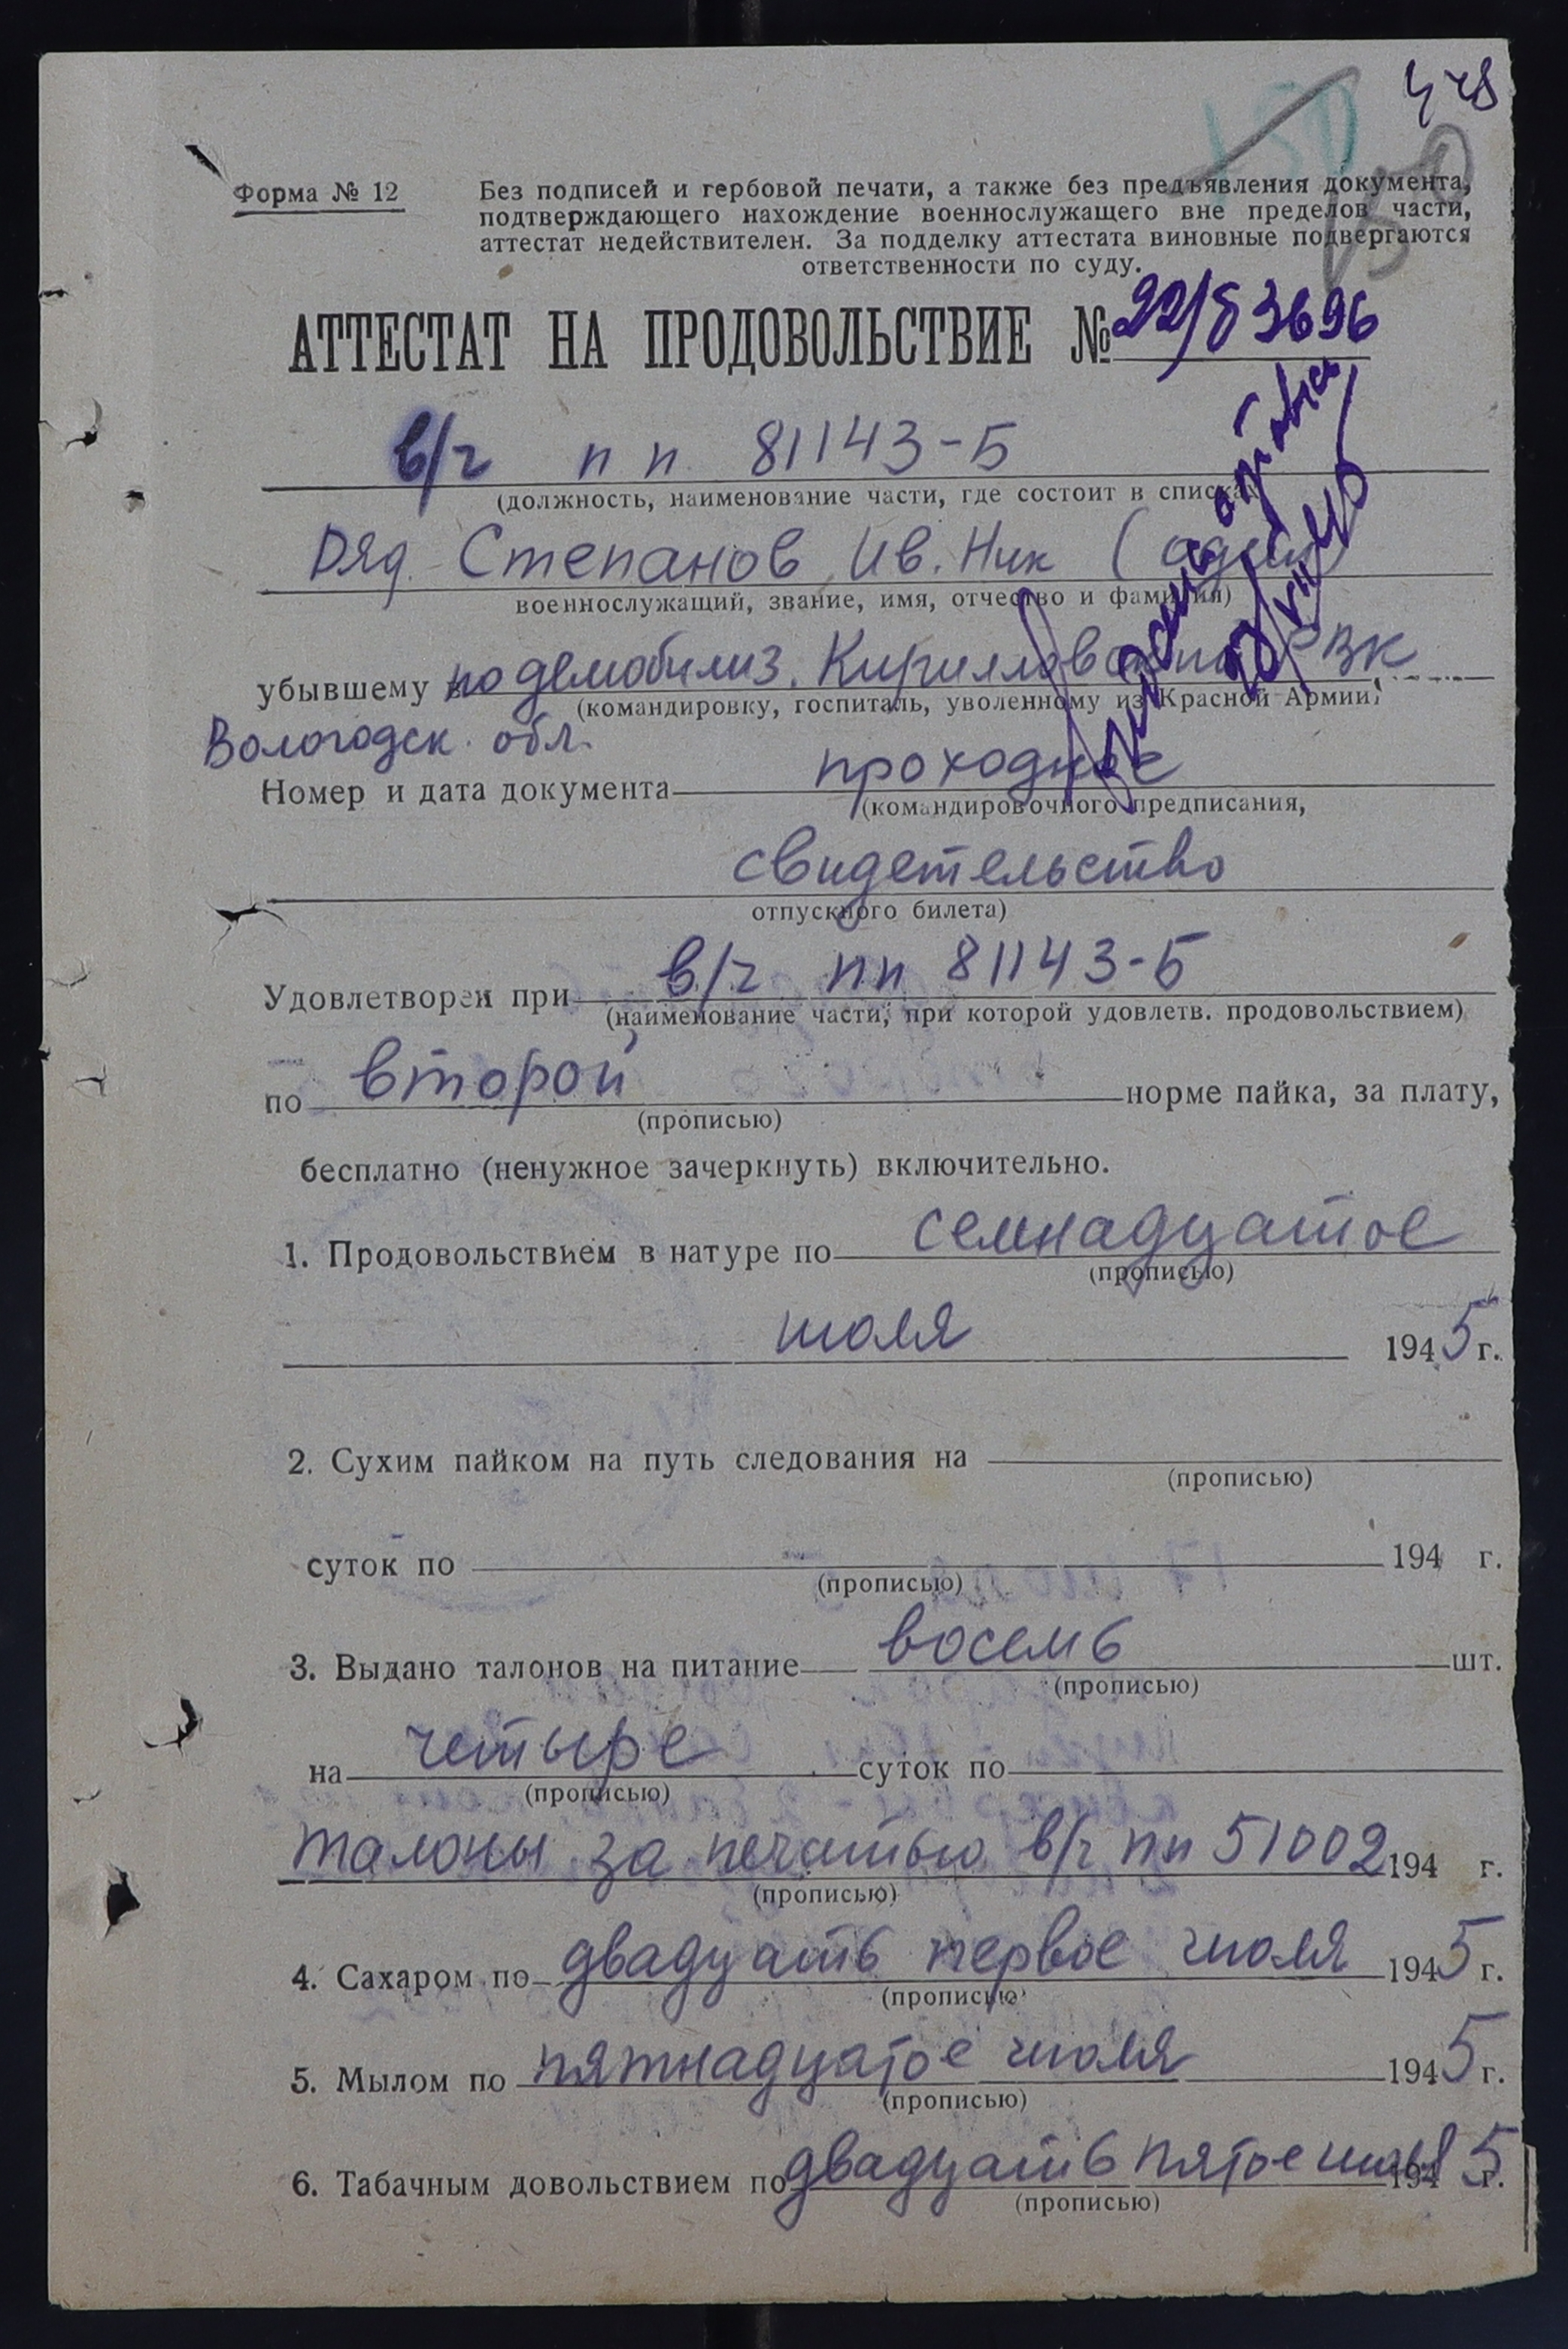 448
150
150
Форма № 12
Без подписей и гербовой печати, а также без предъявления документа,
подтверждающего нахождение военнослужащего вне пределов части,
аттестат недействителен. За подделку аттестата виновные подвергаются
ответственности по суду.
АТТЕСТАТ НА ПРОДОВОЛЬСТВИЕ № 22/53696
в/ч пп 81143-Б
(должность, наименование части, где состоит в списках
Ряд. Степанов Ив. Ник (один)
военнослужащий, звание, имя, отчество и фамилия)
убывшему в по демобилиз. Кирилловский РВК
(командировку, госпиталь, уволенному из Красной Армии,
Вологодск. обл.
Номер и дата документа проходное
(командировочного предписания,
свидетельство
отпускного билета)
Удовлетворен при в/ч пп 81143-Б
(наименование части, при которой удовлетв. продовольствием)
по второй норме пайка, за плату,
(прописью)
бесплатно (ненужное зачеркнуть) включительно.
1. Продовольствием в натуре по семнадцатое
(прописью)
июля 1945 г.
2. Сухим пайком на путь следования на
(прописью)
суток по 194 г.
(прописью)
3. Выдано талонов на питание восемь шт.
(прописью)
на четыре суток по
(прописью)
талоны за печатью в/ч пп 51002 194 г.
(прописью)
4. Сахаром по двадцать первое июля 1945 г.
(прописью)
5. Мылом по пятнадцатое июля 1945 г.
(прописью)
6. Табачным довольствием по двадцать пятое июля 1945 г.
(прописью)